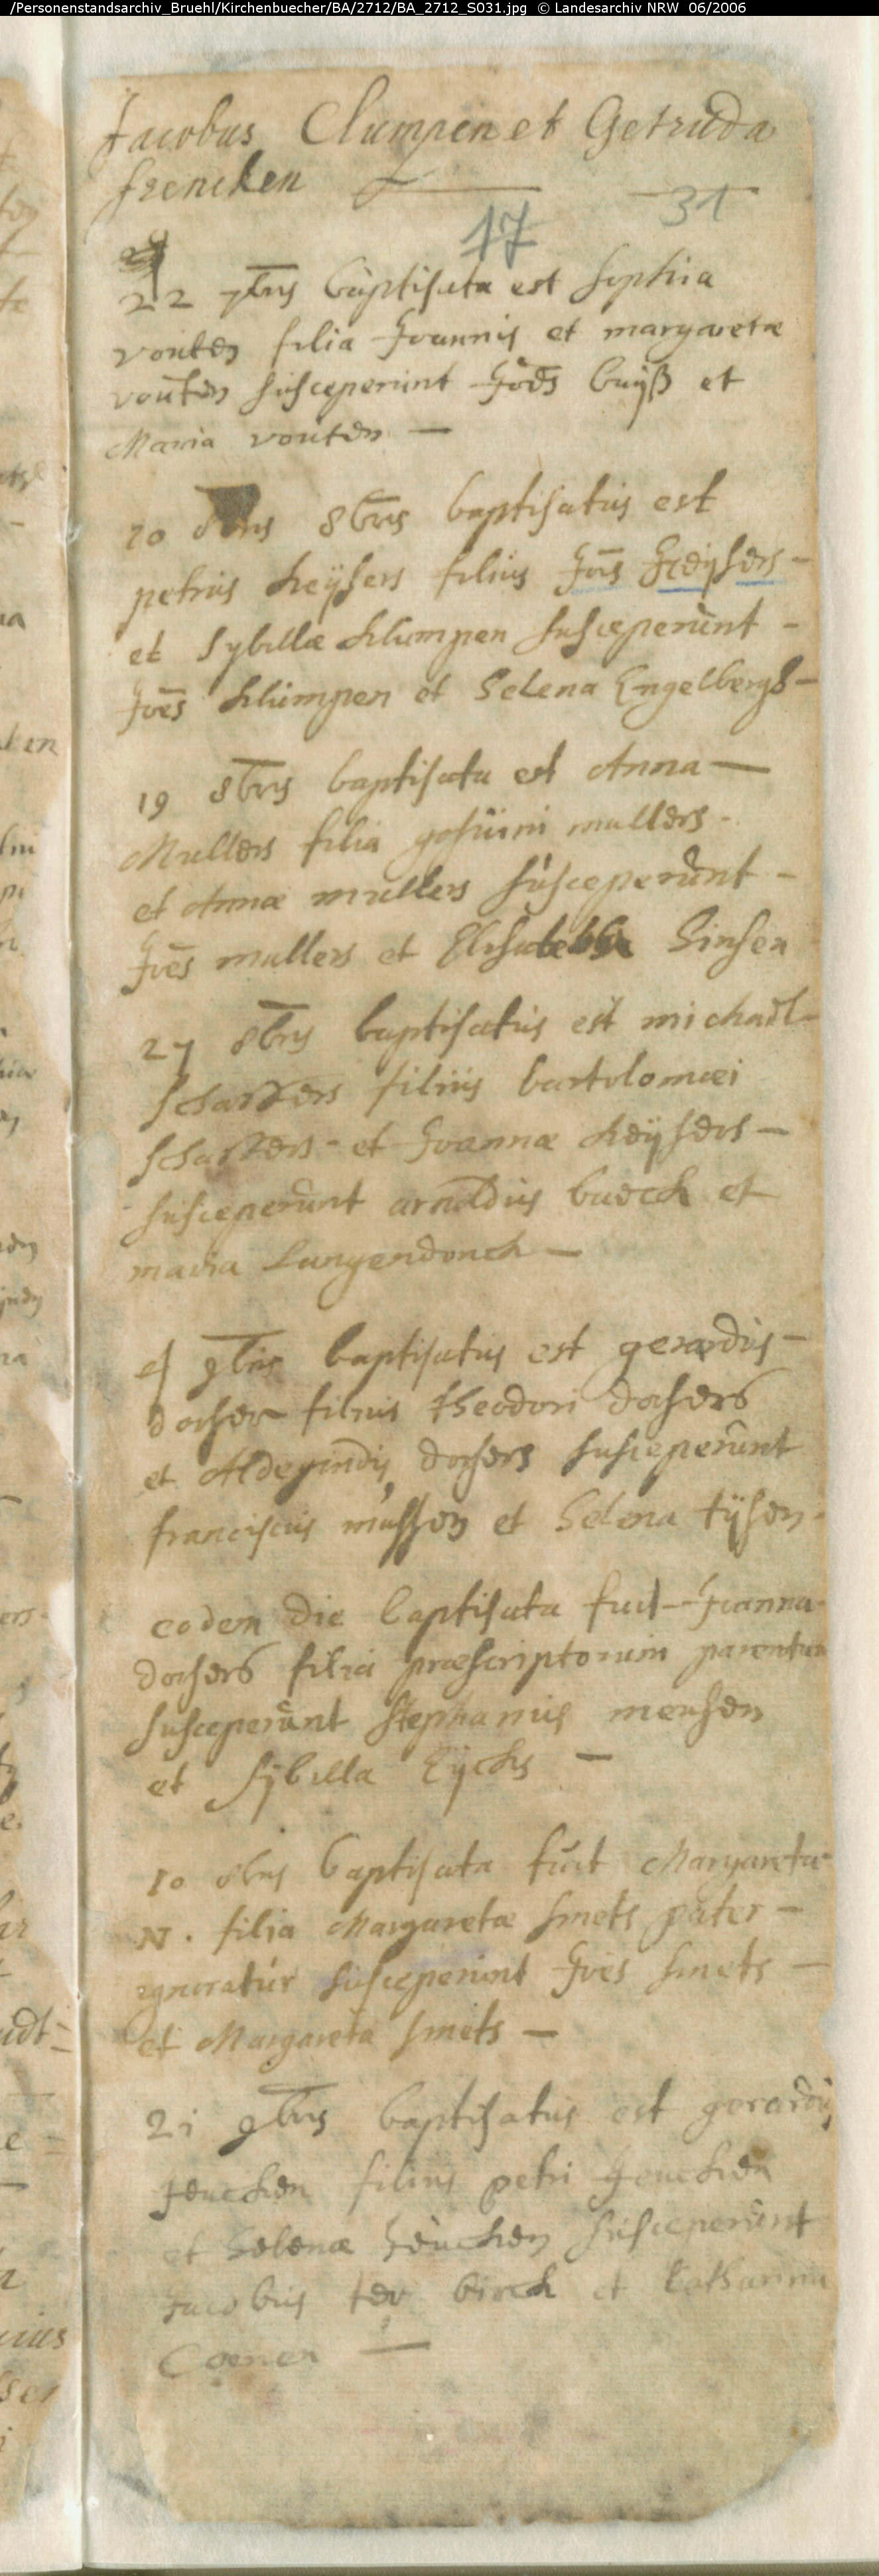 /Personenstandsarchiv_Bruehl/Kirchenbuecher/BA/2712/BA_2712_S031.jpg © Landesarchiv NRW 06/2006
Jacobus Clumpen et Getruda
frencken
17 31
22 7bris baptisata est sophia
vonten filia Joannis et margaretæ
vonten susceperunt Joes buÿß et
Maria vonten —
10 8bris baptisatus est
petrus keÿsers filius Jois keÿsers -
et Sybillæ klumpen susceperunt -
Joes klumpen et Selena Engelbergs -
19 8bris baptisata est Anna —
Mullers filia gosuini mullers -
et Annæ mullers susceperunt -
Joes mullers et Elisabetha Sinsen
27 8bris baptisatus est michael -
filius bartolomæi
et Joannæ keÿsers —
susceperunt arnoldus et
maria Langendonck —
9bris baptisatus est gerardus -
filius theodori doehers
et Aldegundis doehers susceperunt
franciscus et Selena tÿsen -
eodem die baptisata fuit Joanna
doehers filia præscriptorum parentum
susceperunt stephanus mensen
et sÿbilla Eÿckes —
10 8bris baptisata fuit Margareta
N. filia Margaretæ smets pater -
ignoratur susceperunt Joes smets —
et Margareta smets —
21 9bris baptisatus est gerardus
Jencken filius petri Jencken
et Selenæ Jencken susceperunt
Jacobus ter birck et Catharina